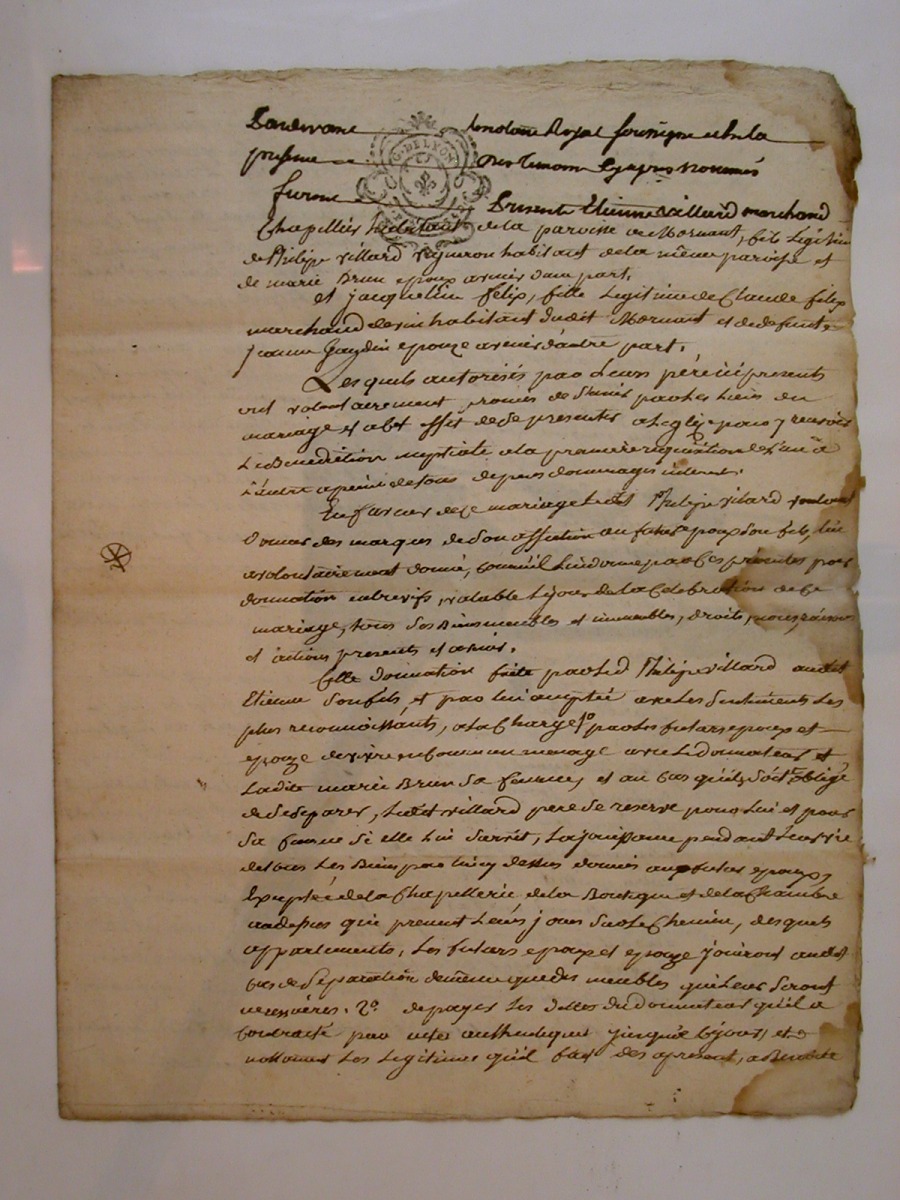 Pardevant le notaire Royal soussigné et en la
presence des temoins cy apres nommés
G. DE LYON
furent Presents Etienne villard marchand
Chapellier habitant de la paroisse de Mornant, fils Legitime
de Philipe villard vigneron habitant de la même paroisse et
de marie Brun epoux avenir d'une part.
et jacqueline felix, fille Legitime de Claude felix
marchand de vin habitant dudit Mornant et de defunte
jeanne Gaudin epouze avenir d'autre part.
Lesquels autorisés par Leurs pére ici presents
ont volontairement promis de s'unir par les Liens du
mariage et a cet effet de se presenter a Leglize pour y recevoir
La Benediction nuptiale a la premiere requisition de L'un a
L'autre a peine de tous depens dommages interest.
En faveur de ce mariage Ledit Philipe vilard voulant
donner des marques de son affection au futur epoux son fils, lui
a volontairement donné, comme il Lui donne par Ces presentes par
donnation entrevifs, valable Le jour de la Celebration de Ce
mariage, tous ses Biens meubles et immeubles, droits, noms, raisons
et actions presents et avenir.
Cette donnation faite par Led Philipe villard audit
Etienne son fils, et par lui acceptée avec Les sentiments Les
plus reconnoissants, a la Charge 1o par les futurs epoux et
epouze de vivre en commun menage avec Le donnateur et
Ladite marie Brun sa femme, et au cas qu'ils soient obligé
de se separer, Ledit villard pere se reserve pour Lui et pour
sa femme si elle Lui survit, La jouissance pendant Leur vie
de tous Les Biens par lui cy dessus donnés aux futurs epoux,
Exceptée de la Chapellerie de la Boutique et de la Chambre
au dessus qui prennent Leurs jours sur Le Chemin, desquels
appartements, Les futurs epoux et epouze jouiront audit
cas de separation de même que des meubles qui Leur seront
necessaires. 2o de payer Les dettes du donnateur qu'il a
Contracté par actes authentiques jusqu'a Cejour, et
nottament Les Legitimes qu'il fait des apresent, a Benoite